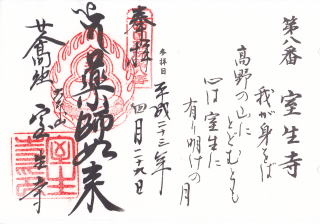 第八番 室生寺
我が身をば
高野の山に
とどむとも
心は室生に
有り明けの月
参拝日
平成二十三年
四月二十九日
奉拝
薬師如来
室生寺